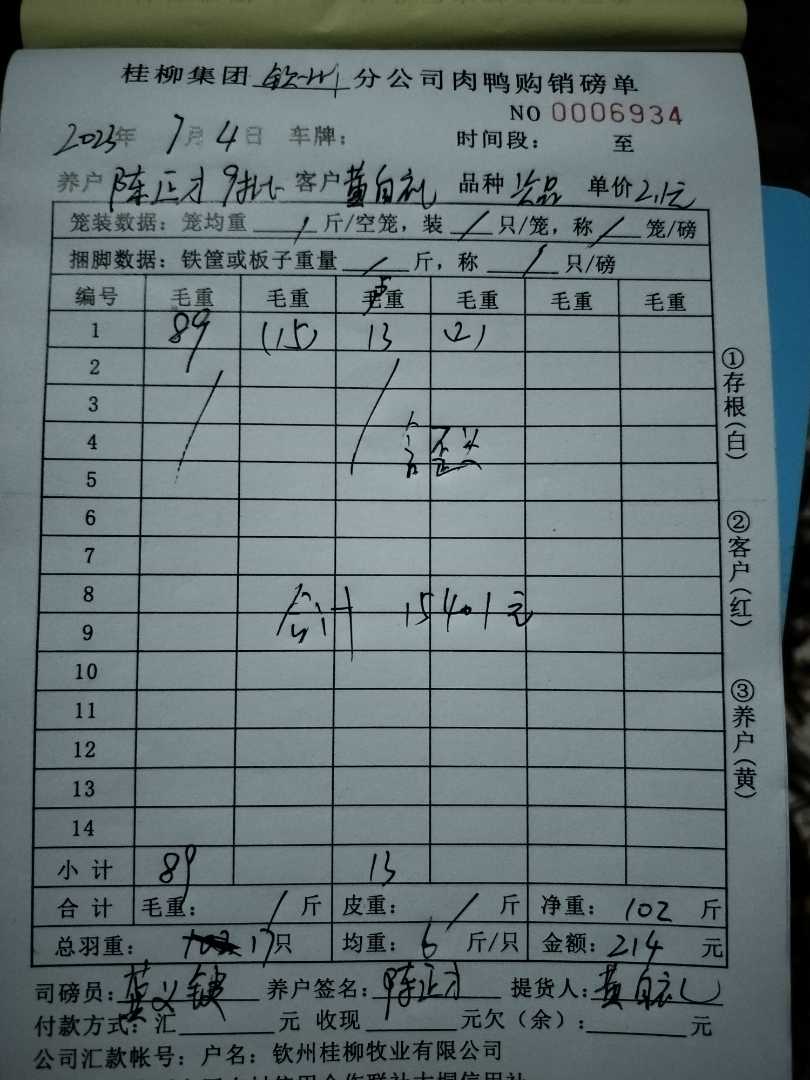 桂柳集团 钦州 分公司肉鸭购销磅单
NO 0006934
2023年 7月 4日 车牌： 时间段： 至
养户 陈正才 9批 客户 黄自礼 品种 单价 2.1元
笼装数据：笼均重 / 斤/空笼，装 / 只/笼，称 / 笼/磅
捆脚数据：铁筐或板子重量 / 斤，称 / 只/磅
编号 毛重 毛重 重 毛重 毛重 毛重
1 89 (15) 13 (2)
2
3
4
5
6
7
8
合计 1540.1元
9
10
11
12
13
14
小计 89 13
合计 毛重： / 斤 皮重： / 斤 净重： 102 斤
总羽重： 17只 均重： 6 斤/只 金额： 214 元
司磅员： 黄义 养户签名： 陈正才 提货人： 黄自礼
付款方式：汇 元 收现 元欠（余）： 元
公司汇款帐号：户名：钦州桂柳牧业有限公司
①存根（白）
②客户（红）
③养户（黄）